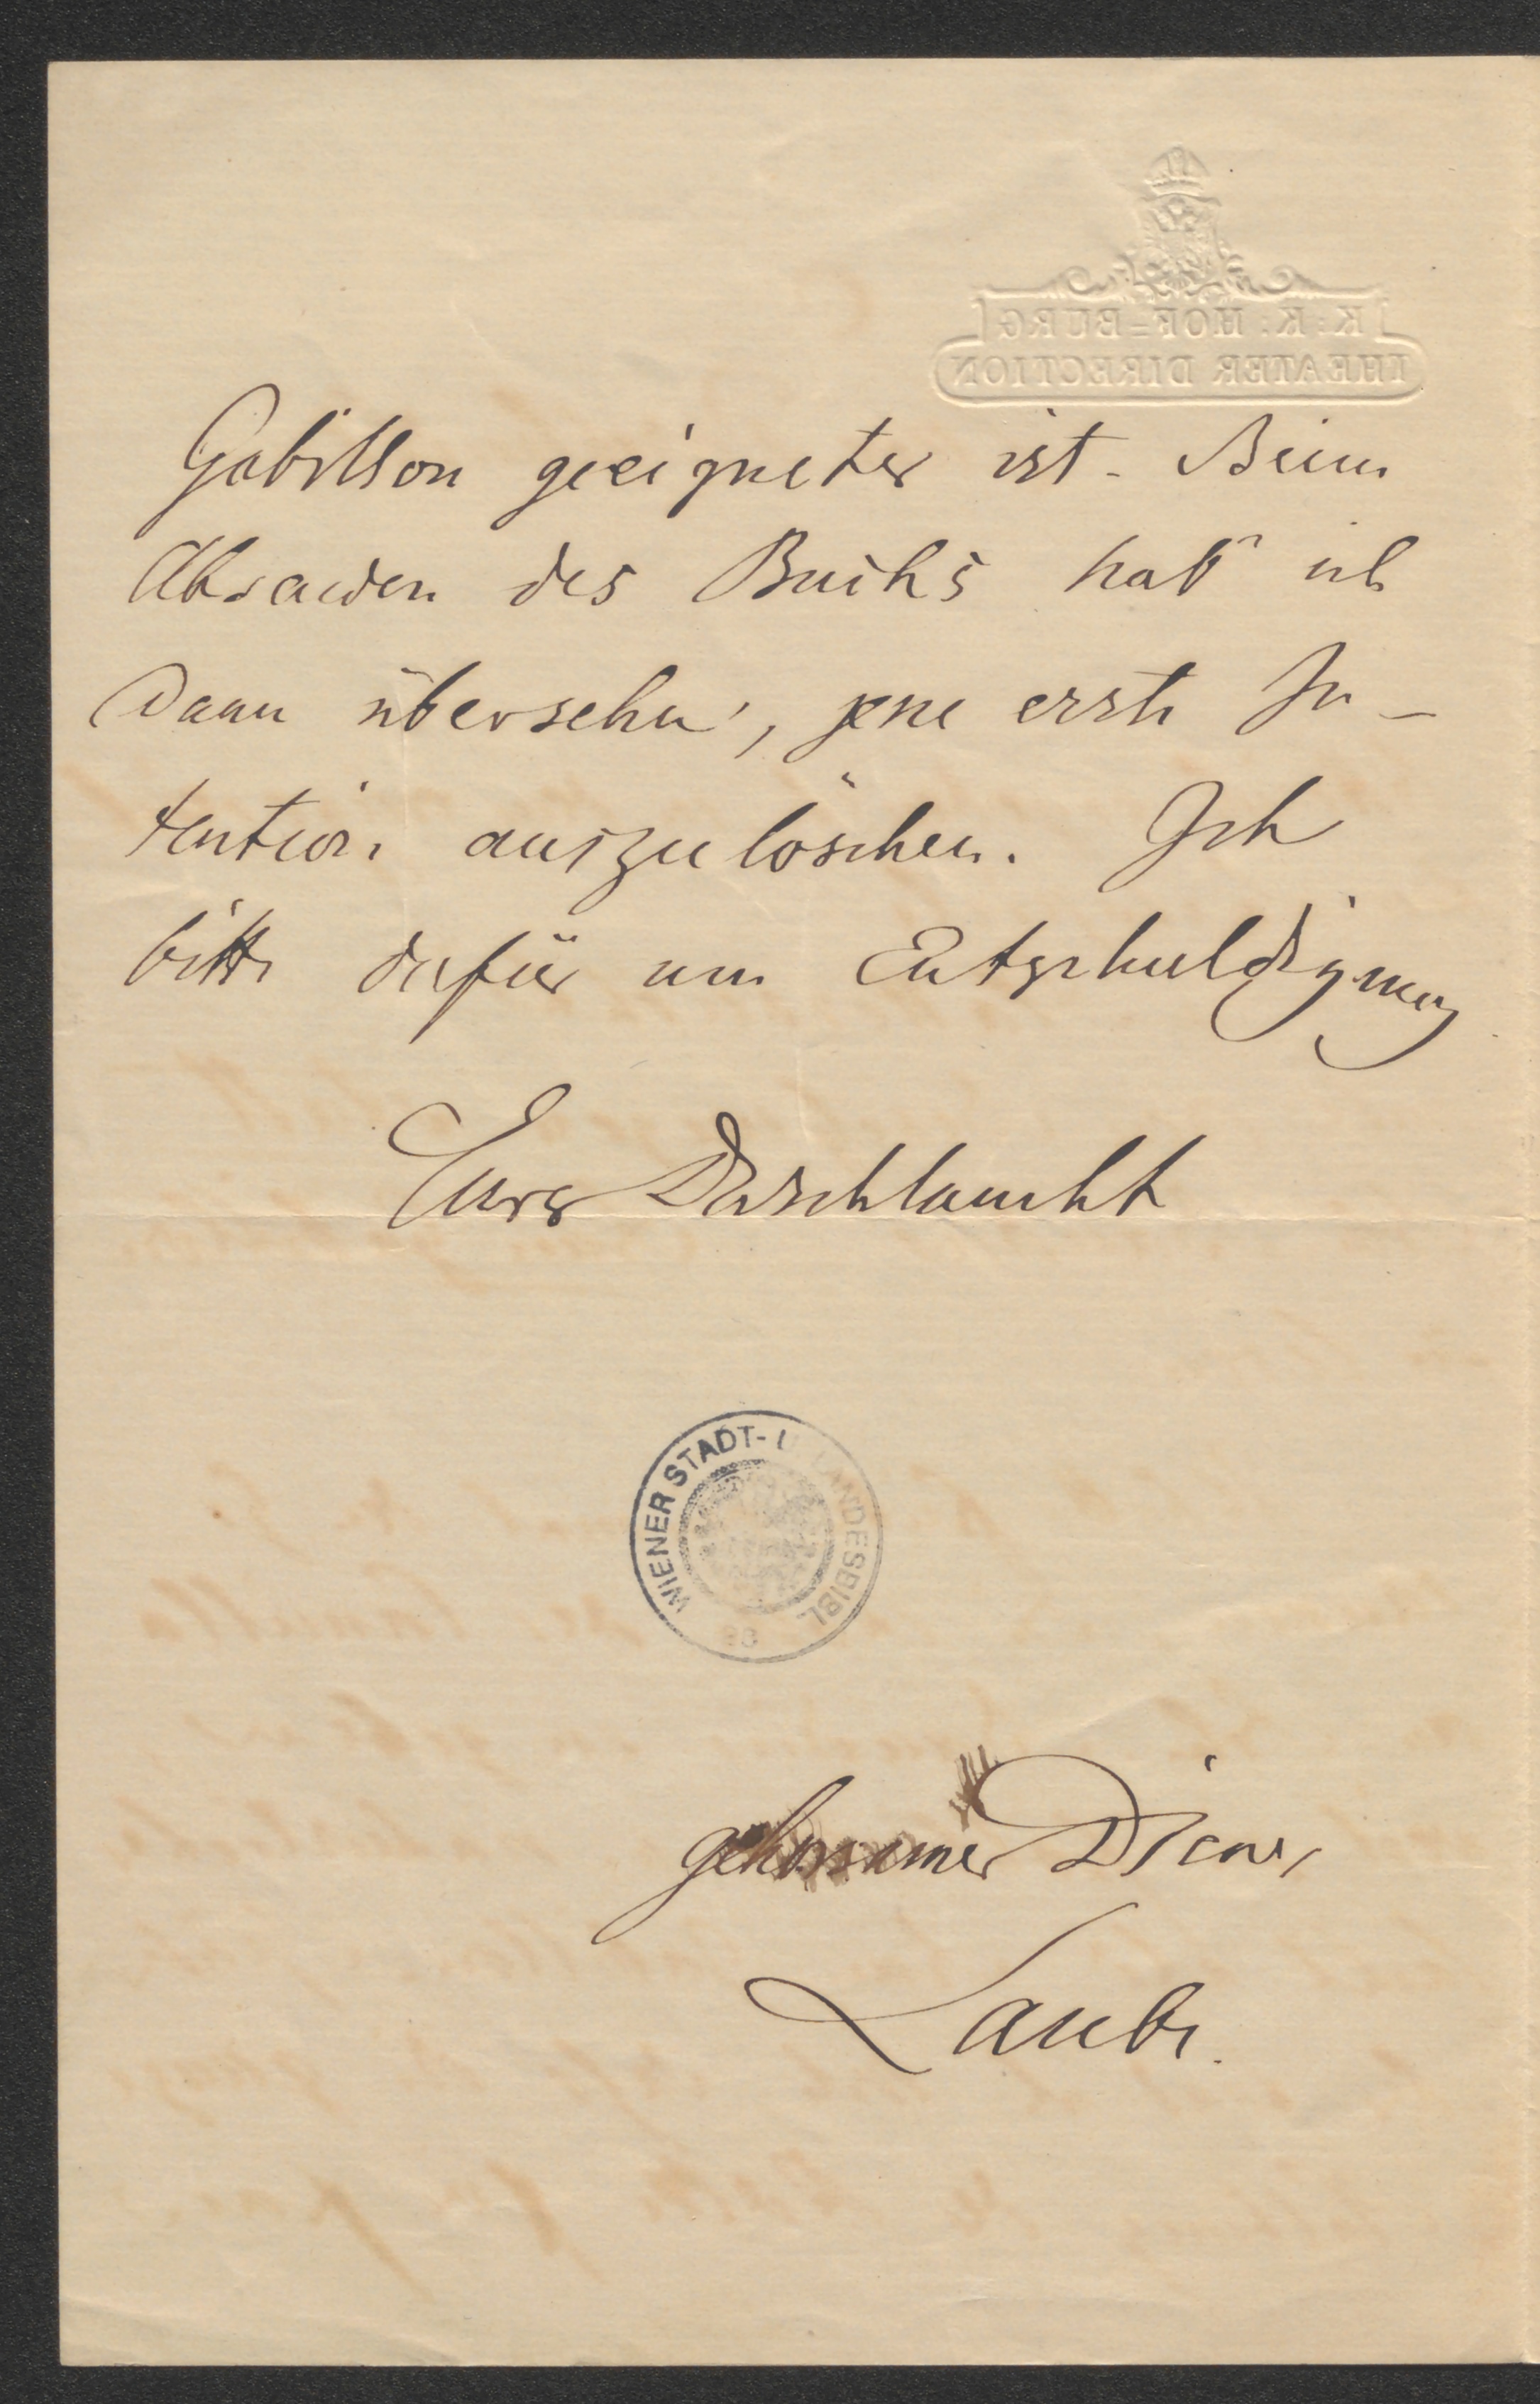 K: K: HOF=BURG
THEATER DIRECTION
Gabillon geeigneter ist. Beim
Absenden des Buchs hab' ich
dann übersehn, jene erste In-
tention auszulöschen. Ich
bitte dafür um Entschuldigung
Eurer Durchlaucht
WIENER STADT- U. LANDESBIBL.
gehorsamer Diener
Laube.